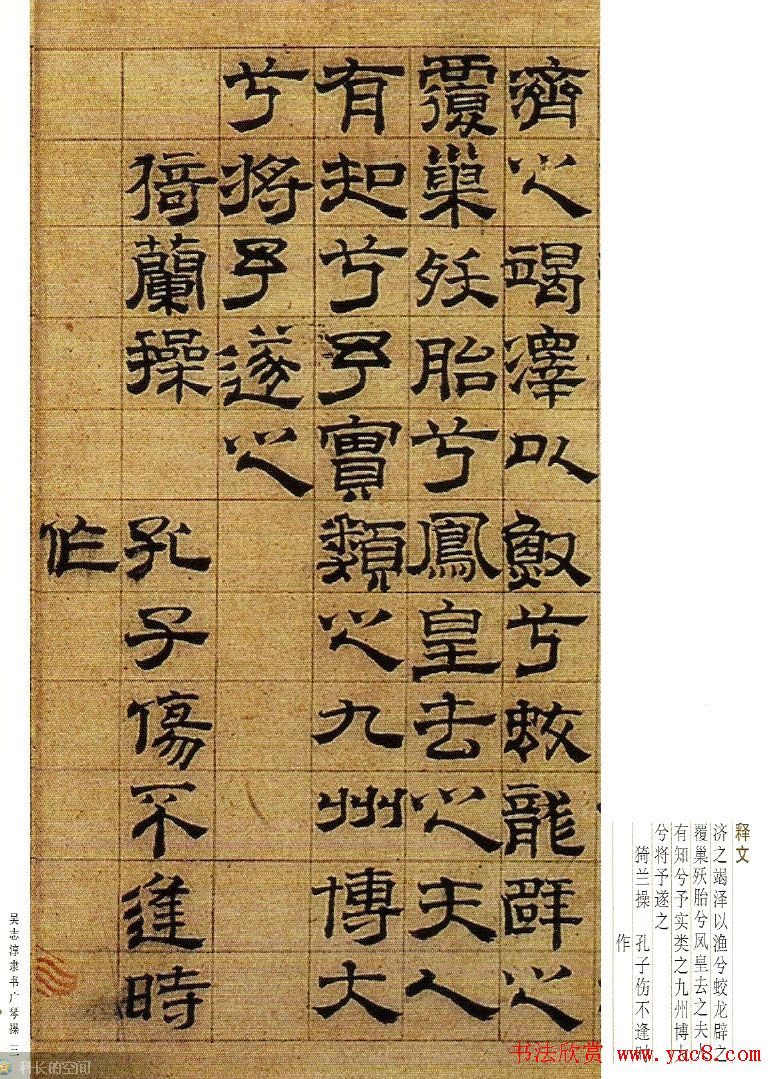 濟之竭澤以䲣兮蛟龍辟之
覆巢殀胎兮鳳皇去之夫人
有知兮予實類之九州博大
兮將予遂之
猗蘭操 孔子傷不逢時
作
释文
济之竭泽以渔兮蛟龙辟之
覆巢殀胎兮凤皇去之夫
有知兮予实类之九州博
兮将予遂之
猗兰操 孔子伤不逢
作
吴志淳隶书广琴操 三
科长的空间
书法欣赏 www.yac8.com